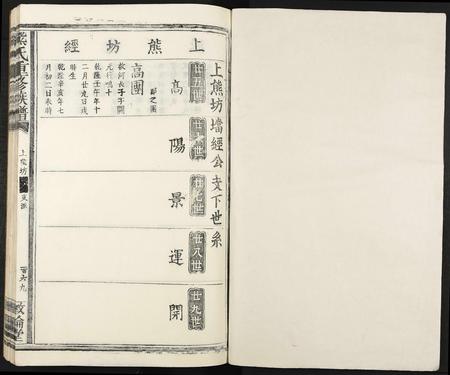 經坊熊上
上熊坊壋經公支下世系
廿五世
廿六世
廿七世
廿八世
廿九世
高
陽
景
運
開
高團
欽河長子
元行鳴十
乾隆壬午年十
二月廿九日戌
時生
乾隆辛亥年七
月初二日未時
氏重修族譜
上熊坊
支派
百六九
敦倫堂